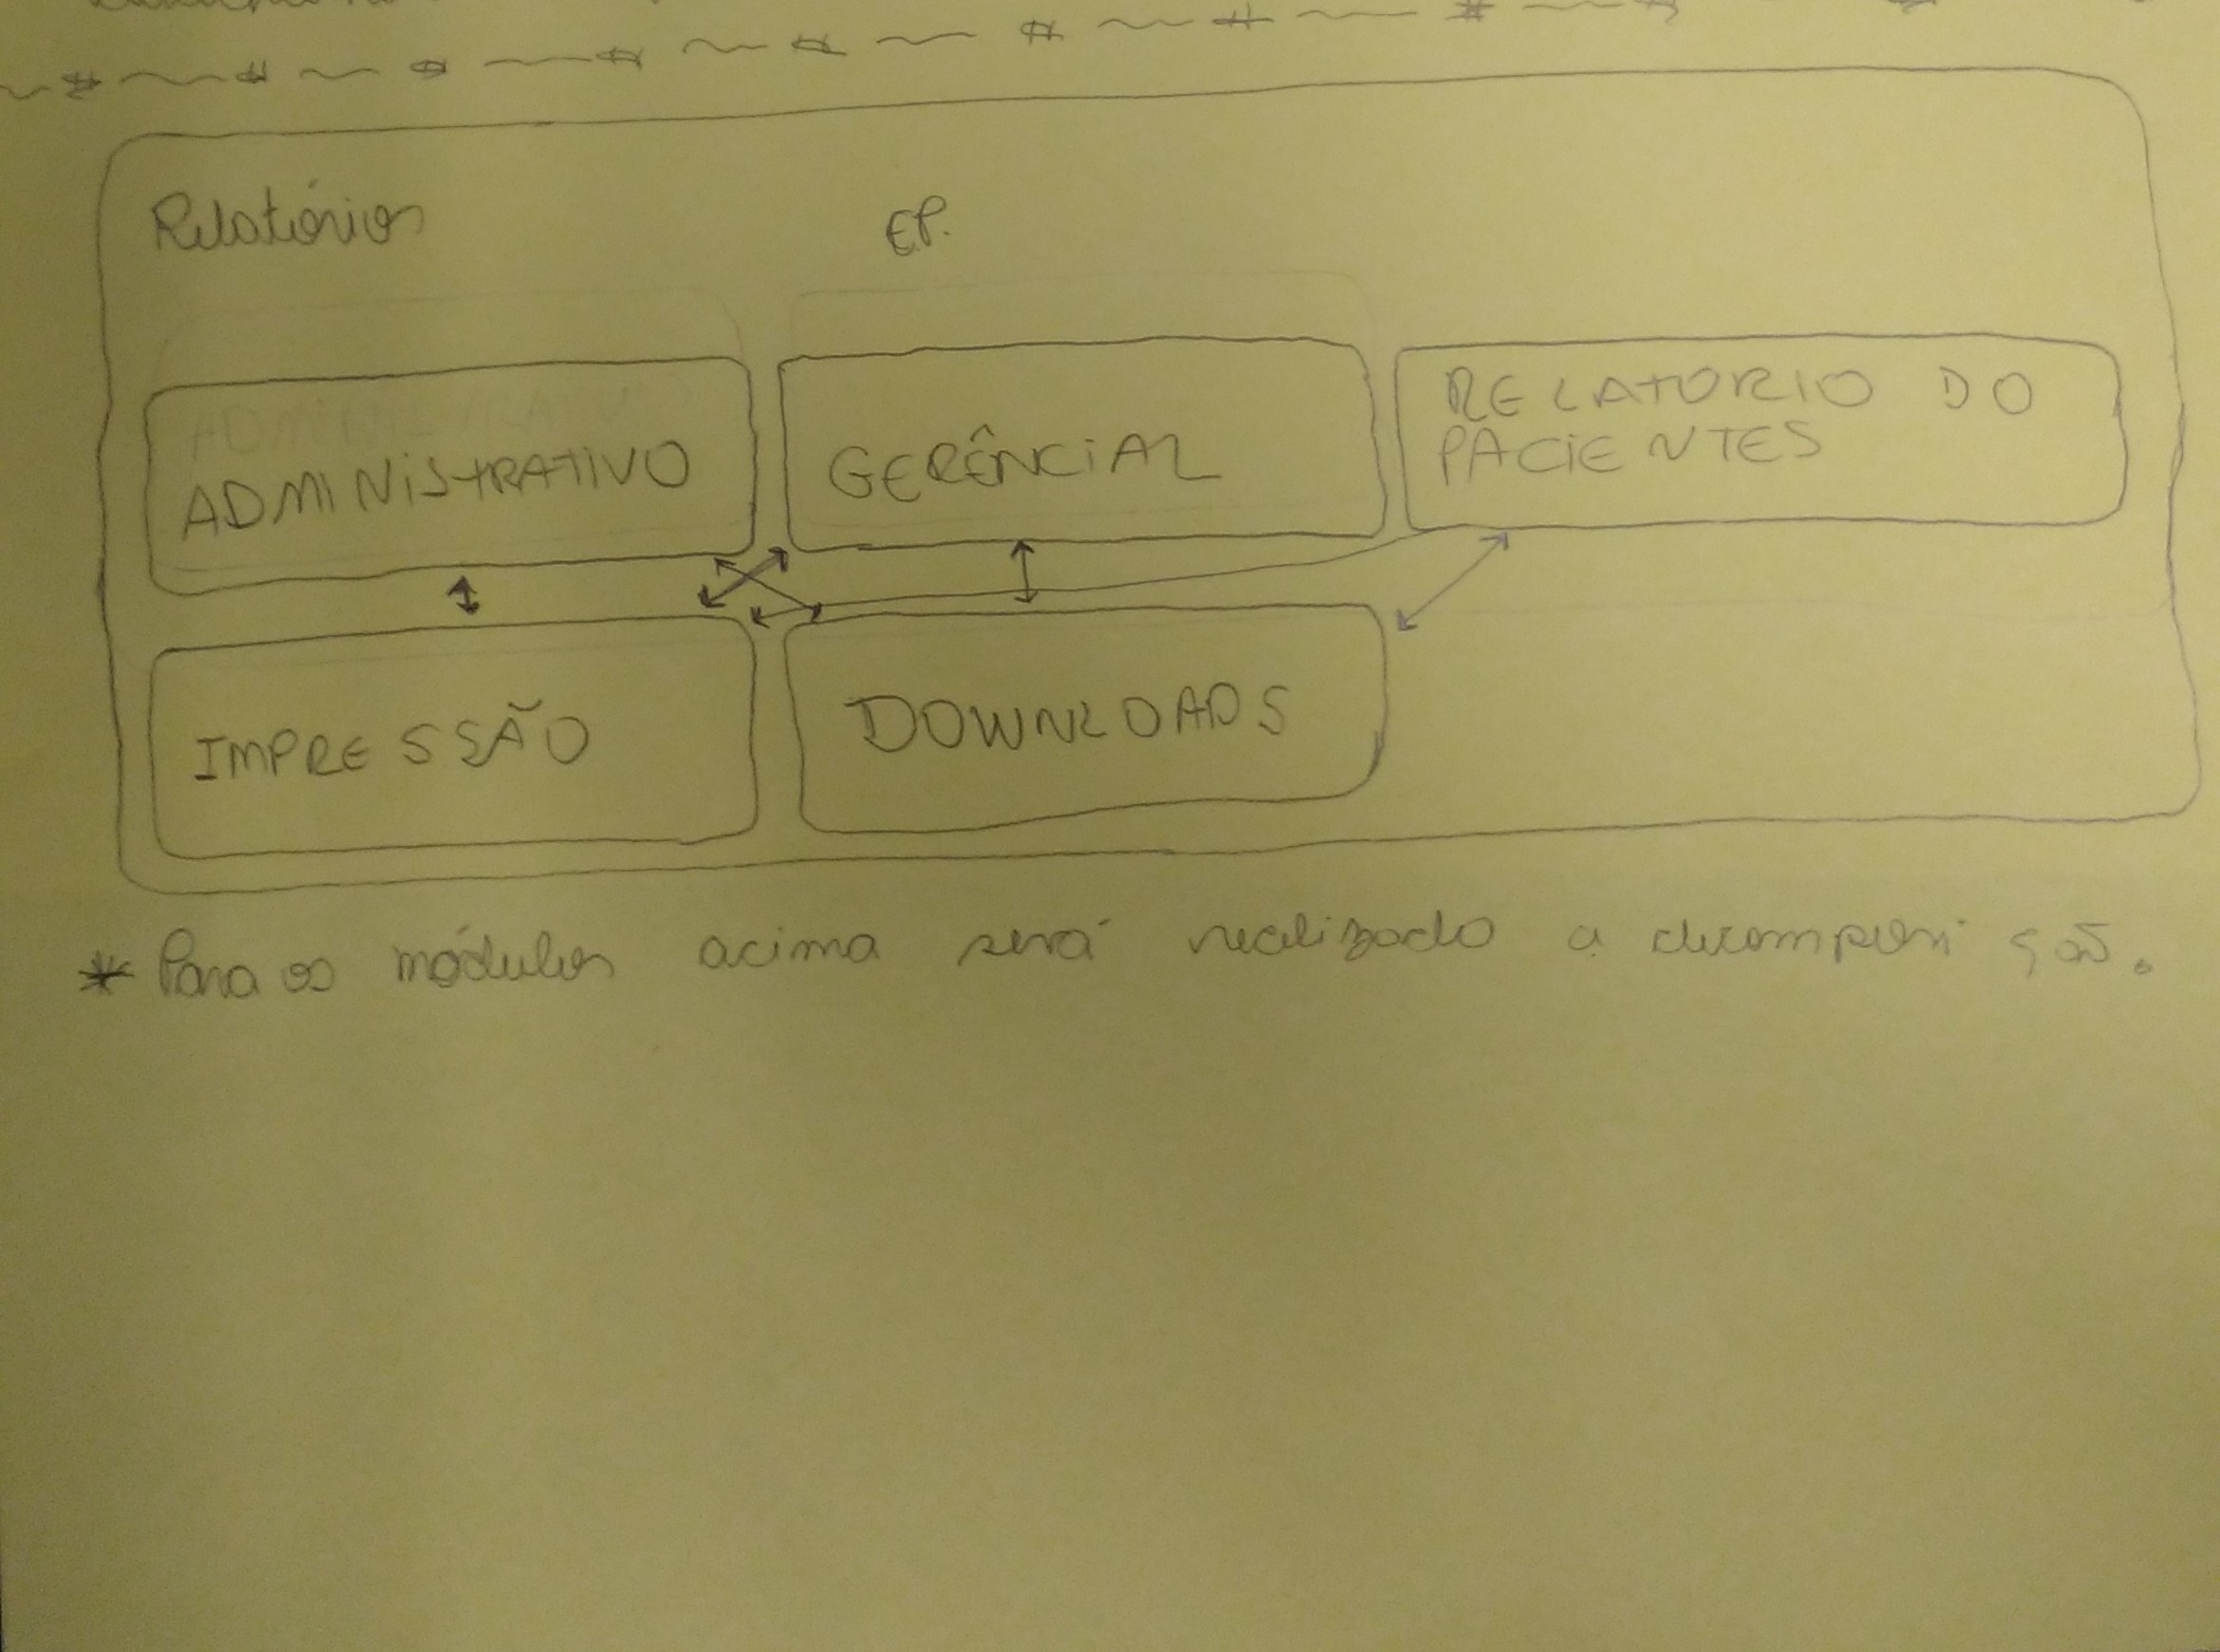 Relatórios EP.
ADMINISTRATIVO
GERÊNCIAL
RELATORIO DO
PACIENTES
IMPRESSÃO
DOWNLOADS
* Para os módulos acima será realizado a decomposição.